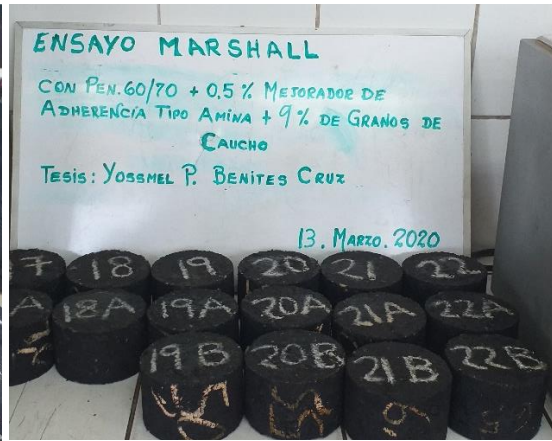 ENSAYO MARSHALL
CON PEN. 60/70 + 0.5 % MEJORADOR DE
ADHERENCIA TIPO AMINA + 9 % DE GRANOS DE
CAUCHO
TESIS: YOSSMEL P. BENITES CRUZ
13. MARZO. 2020
7 18 19 20 21 22
A 18A 19A 20A 21A 22A
19B 20B 21B 22B